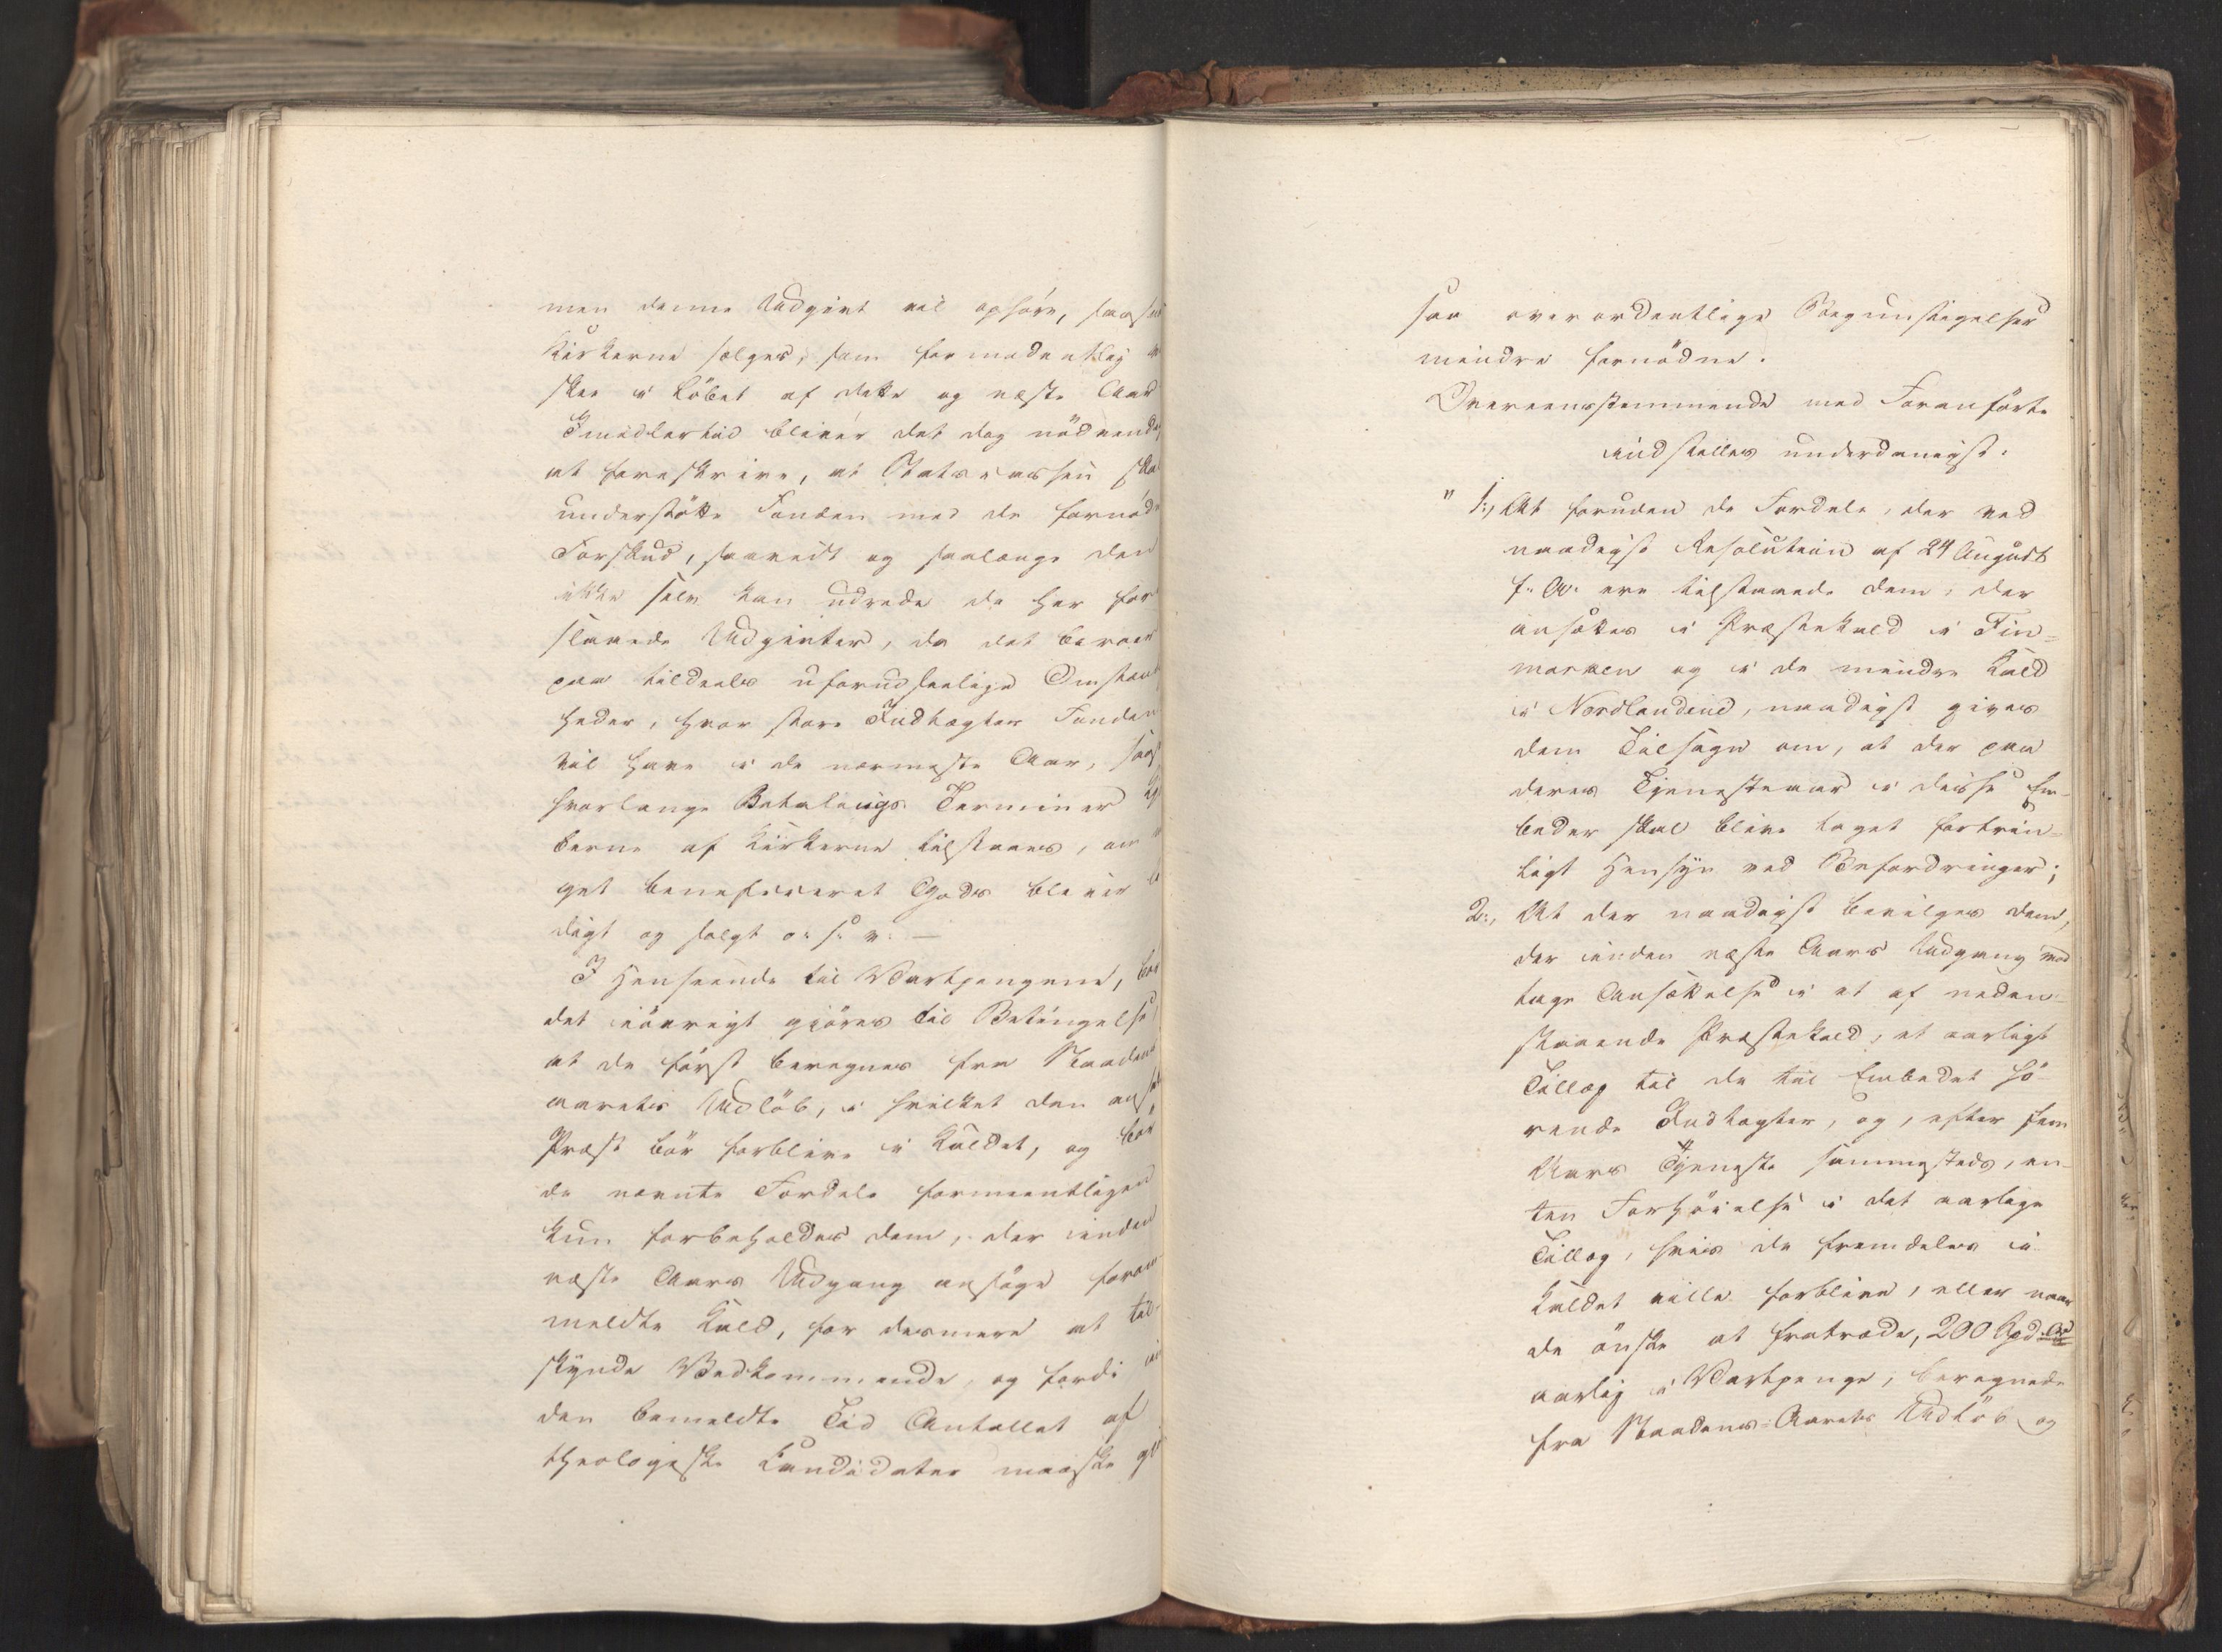 men denne Udgivt vil ophøre, saasnart
Kirkerne sælges, som formodentlig vil
skee i Løbet af dette og næste Aar
Imidlertid bliver det dog nødvendig
at foreskrive, at Statscassen skal
understøtte Fonden med de fornødne
Forskud, saavidt og saalænge den
ikke selv kan udrede de her fore-
slaaede Udgivter, da det beroer
paa tildeels uforudseelige Omstæn-
heder, hvor store Indtægter Fonden
vil have i de nærmeste Aar, saasom
hvorlange Betalings Terminer Kjø-
berne af Kirkerne tilstaaes, om no-
get beneficeret Gods bliver le-
digt og solgt o: s: v: —
I Henseende til Vartpengene, bør
det iøvrigt gjøres til Betingelse,
at de først beregnes fra Naadens
aarets Udløb, i hvilket den ansatte
Præst bør forblive i Kaldet, og bør
de nævnte Fordele formeentligen
kun forbeholdes dem, der inden
næste Aars Udgang ansøge foran-
meldte Kald, for desmere at til-
skynde Vedkommende, og fordi in-
den bemeldte Tid Antallet af
theologiske Candidater maaskee gjør
saa overordentlige Begunstigelser
mindre fornødne.
Overeensstemmende med Foranførte
indstilles underdanigst:
" 1:, At foruden de Fordele, der ved
naadigst Resolution af 24 August
f: A: ere tilstaaede dem, der
ansættes i Præstekald i Fin-
marken og i de mindre Kald
i Nordlandene, naadigst gives
dem Tilsagn om, at der paa
deres Tjenesteaar i disse Em-
beder skal blive taget fortrin-
ligt Hensyn ved Befordringer;
2:, At der naadigst bevilges dem,
der inden næste Aars Udgang mod-
tage Ansættelse i et af neden-
staaende Præstekald, et aarligt
Tillæg til de til Embedet hø-
rende Indtægter, og, efter fem
Aars Tjeneste sammesteds, en-
ten Forhøielse i det aarlige
Tillæg, hvis de fremdeles i
Kaldet ville forblive, eller naar
de ønske at fratræde, 200 Spd.
aarlig i Vartpenge, beregnede
fra Naadens-Aarets Udløb og